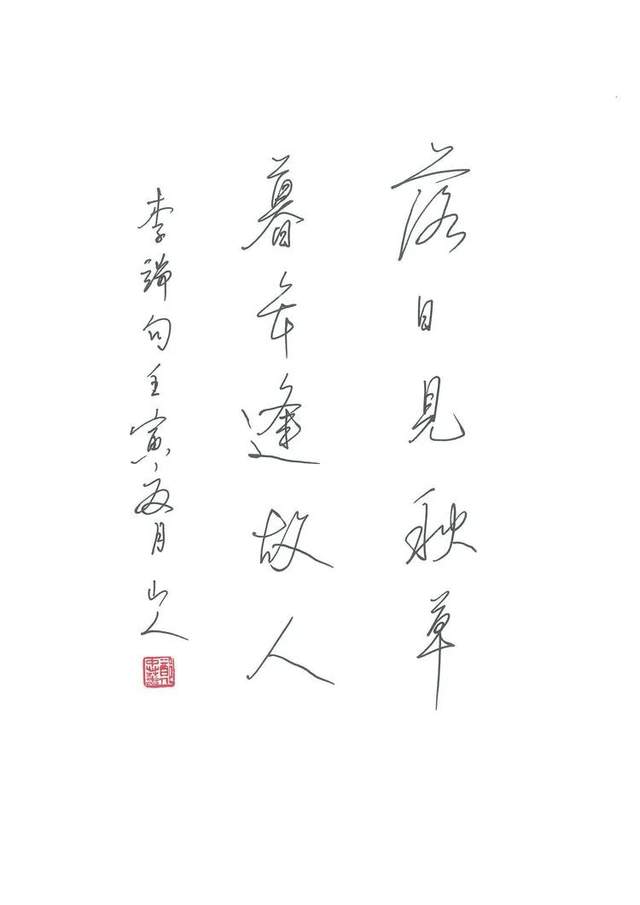 落日見秋草
暮年逢故人
李端句壬寅月山人